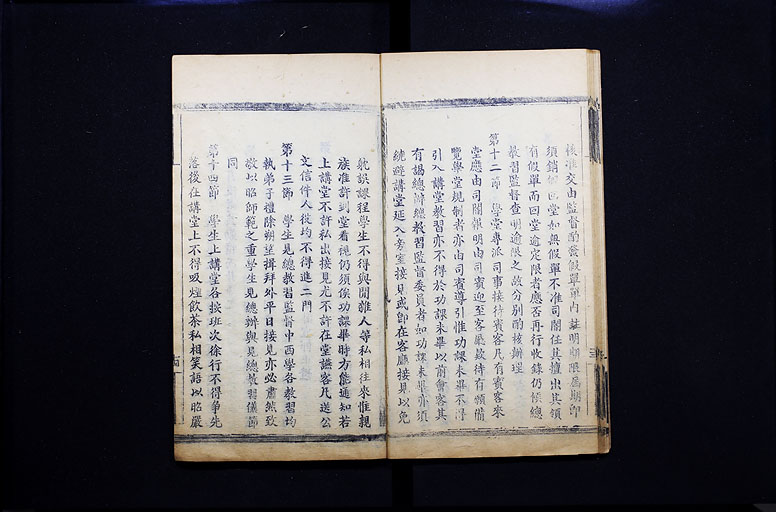 核准交由監督酌發假單單內註明期限屆期即
須銷假回堂如無假單不准司閽任其擅出其領
有假單而回堂逾定限者應否再行收錄仍候總
教習監督查明逾限之故分別酌核辦理
第十二節　學堂專派司事接待賓客凡有賓客來
堂應由司閽報明由司賓迎至客廳款待有願備
覽學堂規制者亦由司賓導引惟功課未畢不得
引入講堂教習亦不得於功課未畢以前會客其
有謁總辦總教習監督委員者如功課未畢亦須
繞避講堂延入旁室接見或卽在客廳接見以免
躭誤課程學生不得與閒雜人等私相往來惟親
族准許到堂看視仍須俟功課畢時方能通知若
上講堂不許私出接見尤不許在堂讌客凡送公
文信件人役均不得進二門
第十三節　學生見總教習監督中西學各教習均
執弟子禮除朔望揖拜外平日接見亦必肅然致
敬以昭師範之重學生見總辦與見總教習儀節
同
第十四節　學生上講堂各按班次徐行不得爭先
落後在講堂上不得吸煙飲茶私相笑語以昭嚴